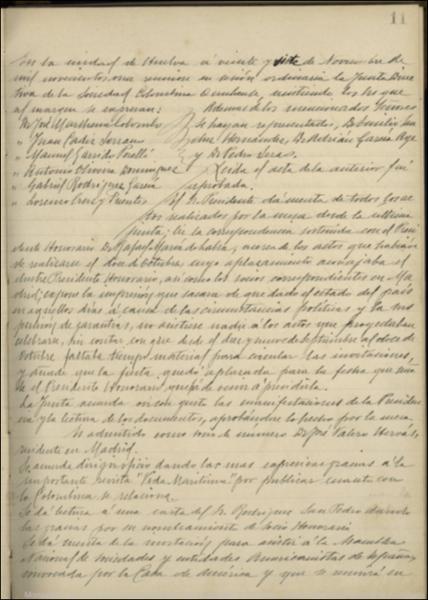 11
En la ciudad de Huelva á veinte y siete de Noviembre de
mil novecientos once reunióse en sesión ordinaria la Junta Direc
tiva de la Sociedad Colombina Onubense, asistiendo los Sres que
al margen se expresan:
Ademas de los mencionados Señores
D. José Marchena Colombo
se hayan representados, D. Emilio
" Juan Cádiz Serrano
Hernández, D. Adrián García Age
" Manuel Garrido Perelló
y D. Pedro Seras.
" Antonio Oliveira Dominguez
Leida el acta de la anterior fué
" Gabriel Rodriguez Garcia
aprobada.
" Lorenzo Cruz y Fuentes
El Sr. Presidente dá cuenta de todos los ac
tos realizados por la mesa desde la ultima
junta; de la correspondencia sostenida con el Presi
dente Honorario D. Rafael Mª de Labra, acerca de los actos que habian
de realizarse el doce de Octubre cuyo aplazamiento aconsejaba el
ilustre Presidente Honorario, así como los socios correspondientes en Ma
drid; expone la impresion que sacara de que dado el estado del país
en aquellos dias á causa de las circunstancias políticas y la sus
pension de garantias, no asistiese nadie á los actos que
celebrara, sin contar con que desde el diez y nueve de Septiembre al doce de
Octubre faltaba tiempo material para circular las invitaciones,
y donde que la junta quedó aplazada para la fecha que
el Presidente Honorario, que ha de venir á presidirla.
La junta acuerda oir con gusto las manifestaciones de la Presiden
cia y la lectura de los documentos, aprobándose lo hecho por la mesa.
Es admitido como socio de número D. José Valero Hervás,
residente en Madrid.
Se acuerda dirigir oficio dando las mas expresivas gracias á la
importante revista "Vida Maritima" por publicar cuanto con
la Colombina se relaciona.
Se dá lectura á una carta del Sr. Rodriguez San Pedro dando
las gracias por su nombramiento de Socio Honorario.
Se dá cuenta de la invitación para asistir á la Asamblea
Nacional de Sociedades y entidades Americanistas de España,
convocada por la Casa de América y que se reunirá en